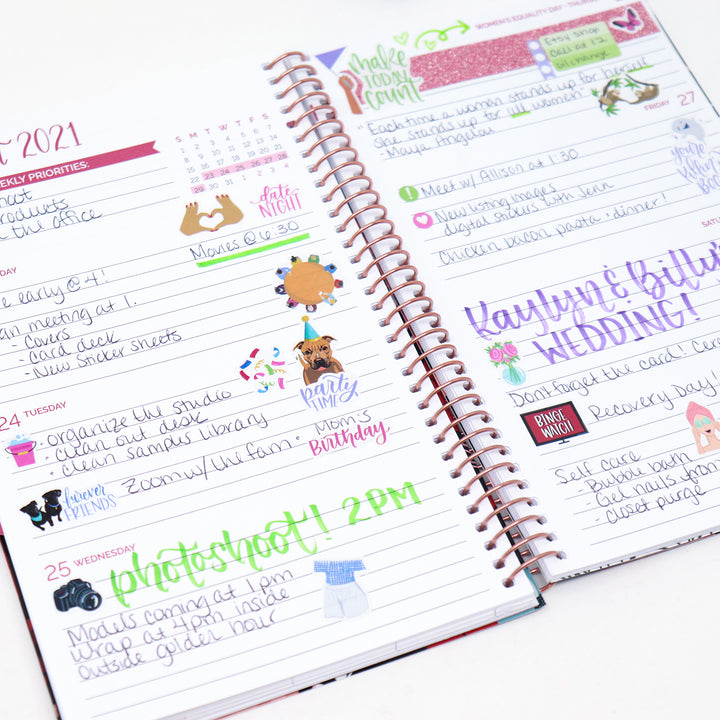 T 2021
EKLY PRIORITIES:
S M T W T F S
1 2 3 4 5 6 7
8 9 10 11 12 13 14
15 16 17 18 19 20 21
22 23 24 25 26 27 28
29 30 31 1 2 3 4
products
the office
date
NIGHT
Movies @ 6:30
DAY
early @ 4!
meeting at 1.
- Covers
- Card deck
- New Sticker Sheets
PARTY
TIME
24 TUESDAY
- organize the studio
- clean out desk
- clean sample library
Mom's
Birthday
Zoom w/ the fam -
furever
FRIENDS
25 WEDNESDAY
photoshoot! 2PM
Models coming at 1pm
Wrap at 4pm inside
Outside golder hour
WOMEN'S EQUALITY DAY
make
TODAY
count
Etsy shop
Call at 12
oil change
"Each time a woman stands up for herself
She stands up for all women"
- Maya Angelou
FRIDAY 27
Meet w/ Allison at 1:30
New listing images
digital stickers with Jenn
Chicken bacon pasta + dinner!
you're
Killin'
Kaylyn & Billy
WEDDING!
Don't forget the card!
BINGE
WATCH
Recovery Day!
Self care
- Bubble bath
- Gel nails from
- closet purge